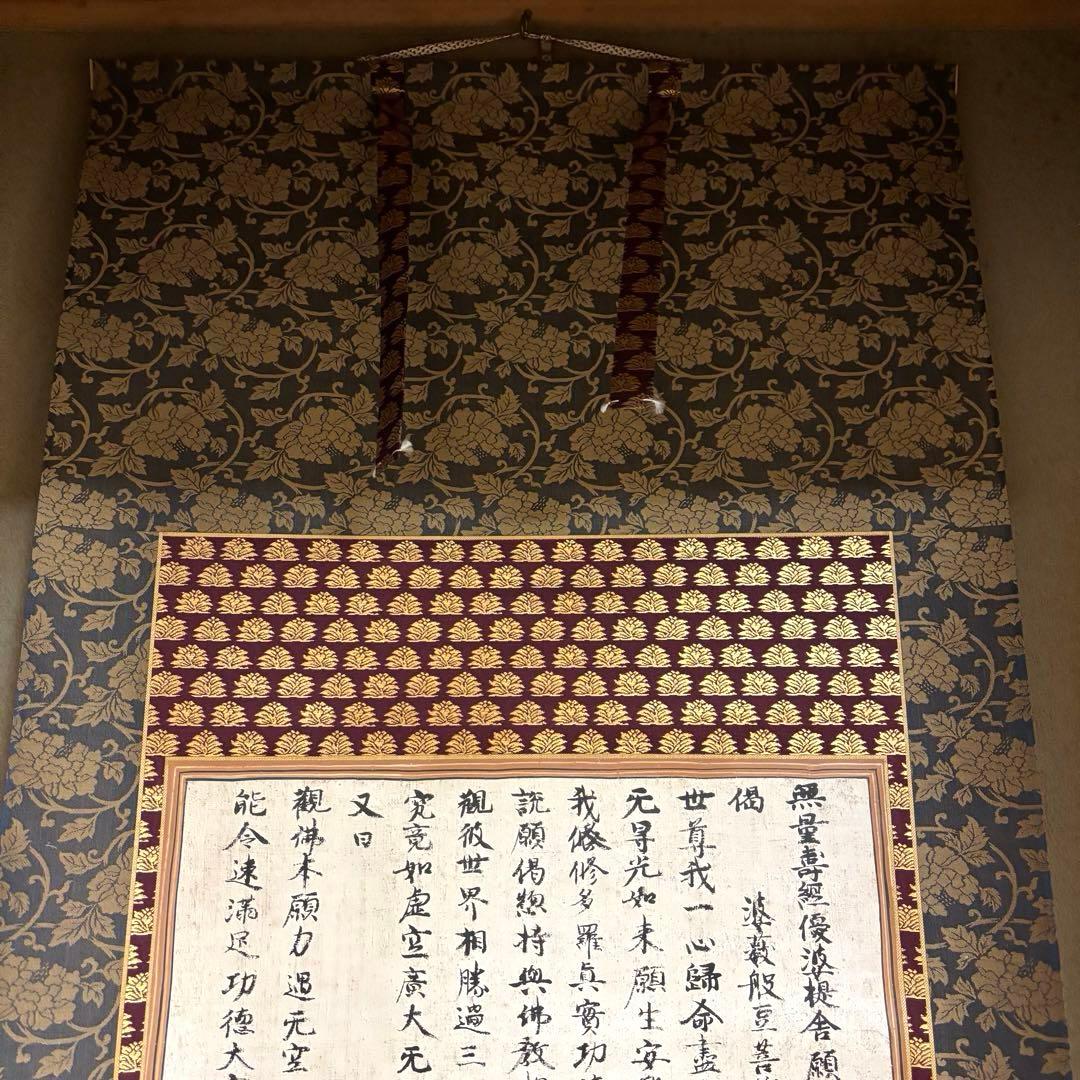 無量壽經優婆提舍願
偈
婆藪般豆菩
世尊我一心歸命盡
无㝵光如来願生安
我依修多羅真實功
說願偈揔持與佛教
觀彼世界相勝過三
究竟如虛空廣大无
又曰
觀佛本願力遇无空
能令速滿足功德大